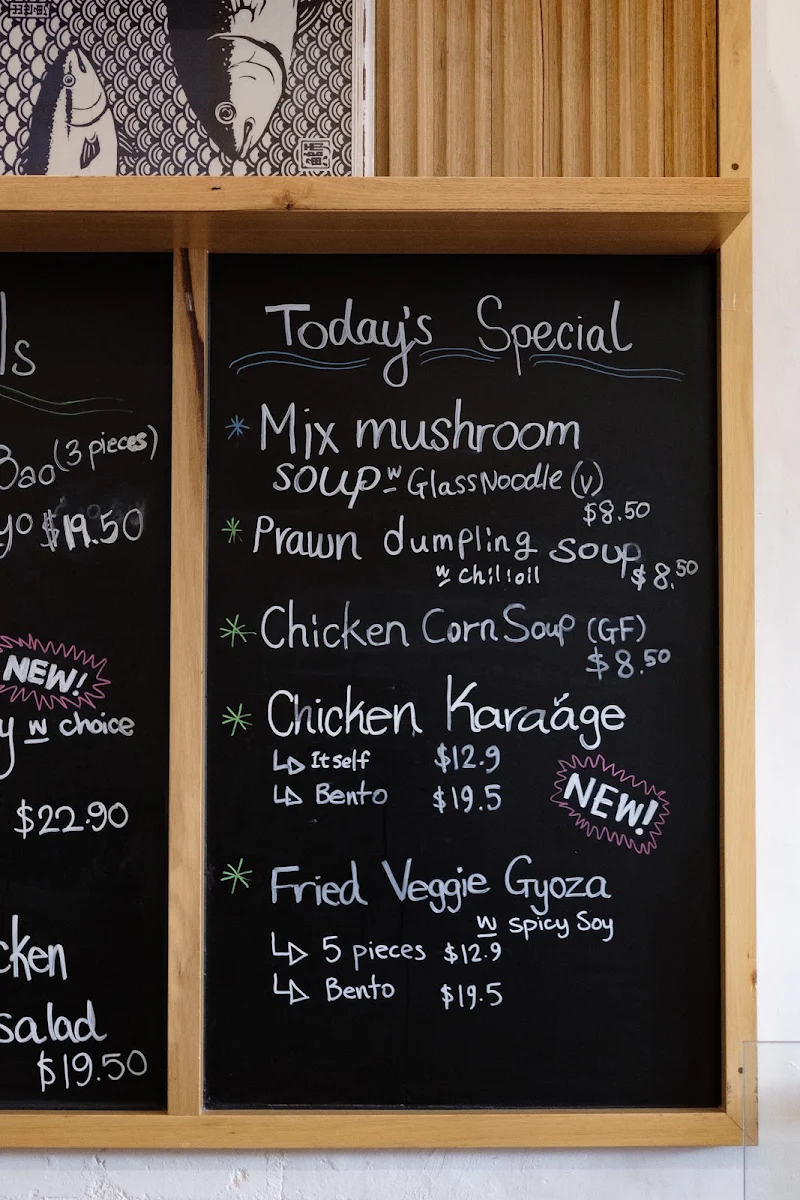 ls
Bao (3 pieces)
yo $19.50
NEW!
y w choice
$22.90
cken
salad
$19.50
Today's Special
* Mix mushroom
soup w Glass Noodle (v)
$8.50
* Prawn dumpling soup
w chilioil
$8.50
* Chicken Corn Soup (GF)
$8.50
* Chicken Karaáge
↳ Itself $12.9
↳ Bento $19.5
NEW!
* Fried Veggie Gyoza
w spicy Soy
↳ 5 pieces $12.9
↳ Bento $19.5